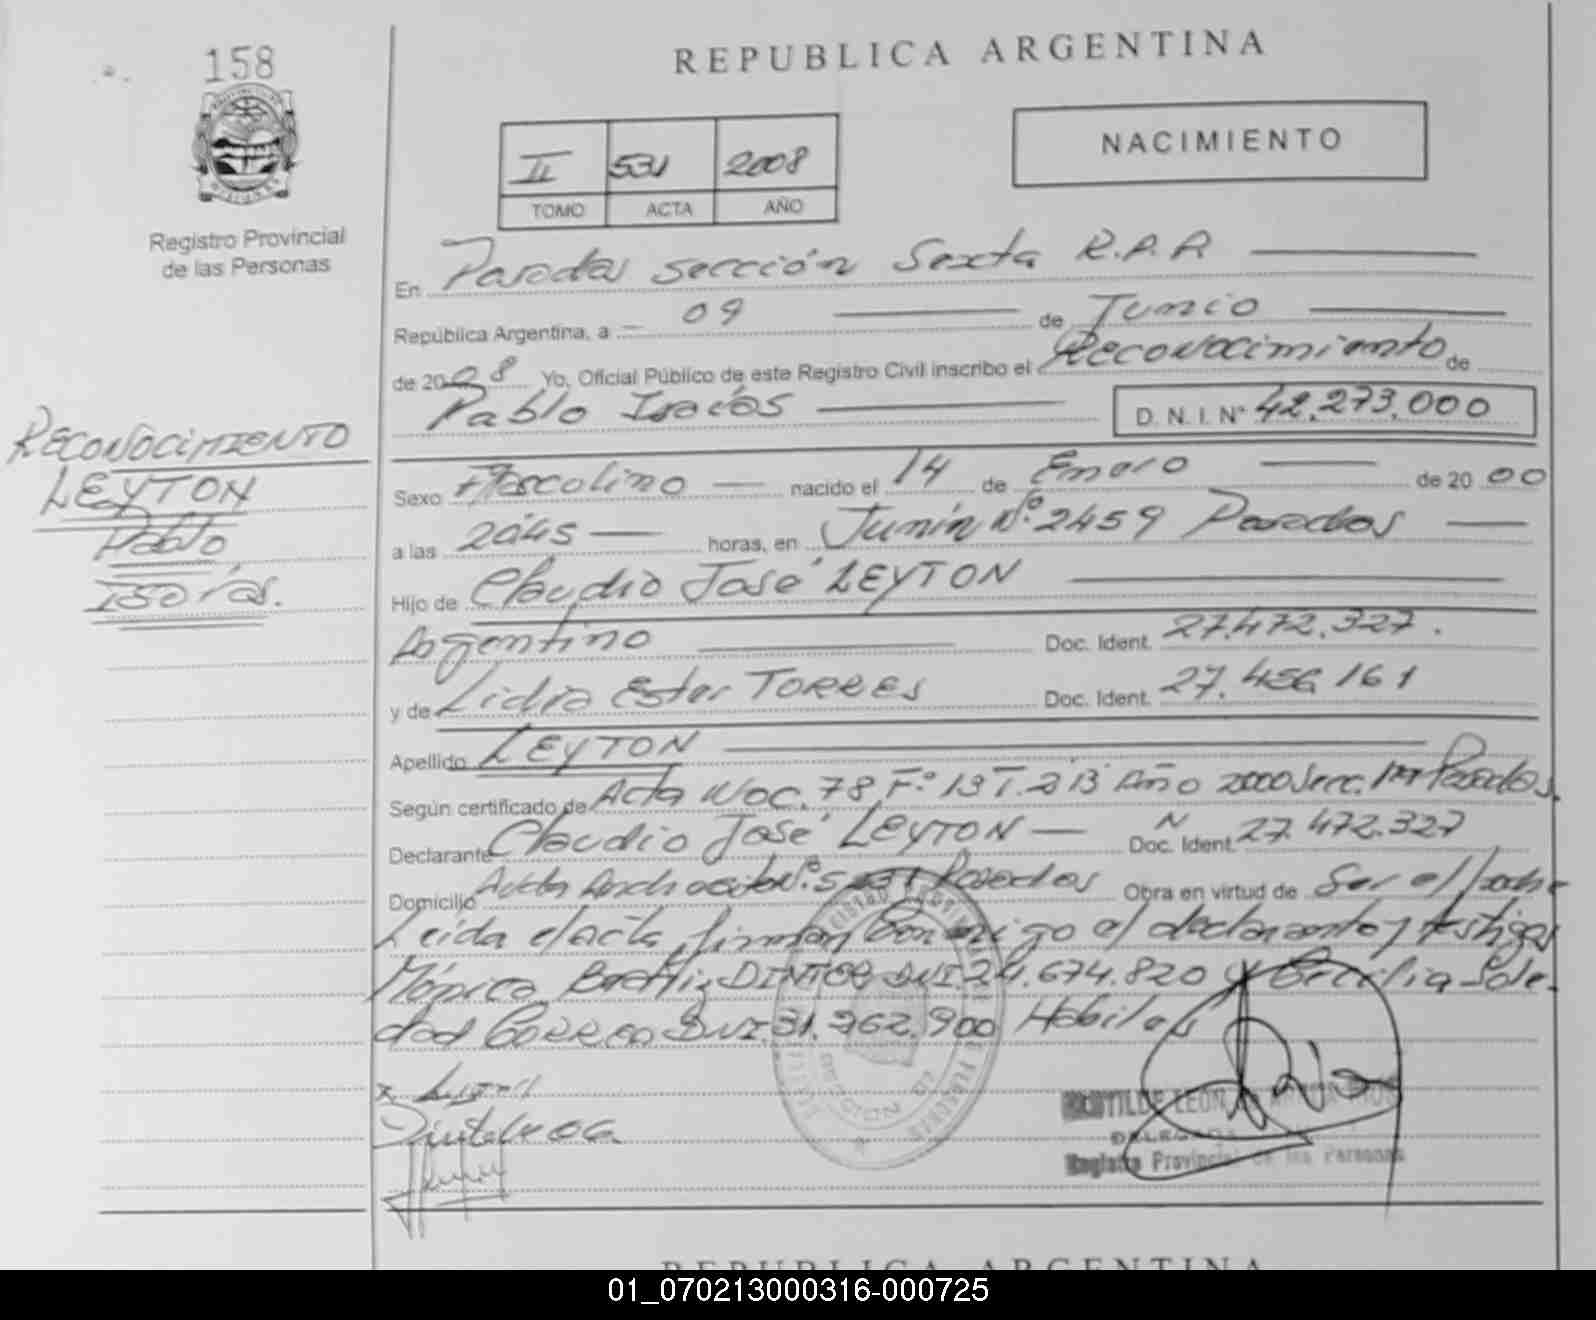 158
REPUBLICA ARGENTINA
NACIMIENTO
II 531 2008
TOMO ACTA AÑO
Registro Provincial
de las Personas
En Posadas sección Sexta R.P.P.
República Argentina, a 09 de Junio
de 2008 Yo, Oficial Público de este Registro Civil inscribo el Reconocimiento de
Pablo Isaías D.N.I. Nº 42.273.000
RECONOCIMIENTO
LEYTON
Pablo
Isaías.
Sexo Masculino nacido el 14 de Enero de 2000
a las 20:45 horas, en Junín Nº 2459 Posadas
Hijo de Claudio José LEYTON
Argentino Doc. Ident. 27.472.327.
y de Lidia Ester TORRES Doc. Ident. 27.456.161
Apellido LEYTON
Según certificado de Acta Nac. 78 Fº 13 T. 2 B Año 2000 Secc. 1ra Posadas.
Declarante Claudio José LEYTON Doc. Ident. 27.472.327
Domicilio Posadas Obra en virtud de Ser el padre
Leída el acta, firman conmigo el declarante y testigos
Mónica Beatriz DNI. 24.674.820 y Cecilia Sole-
dad CORREA DNI. 31.962.900 Hábiles
LEON
DELEGADA
Registro Provincial de las Personas
REPUBLICA ARGENTINA
01_070213000316-000725